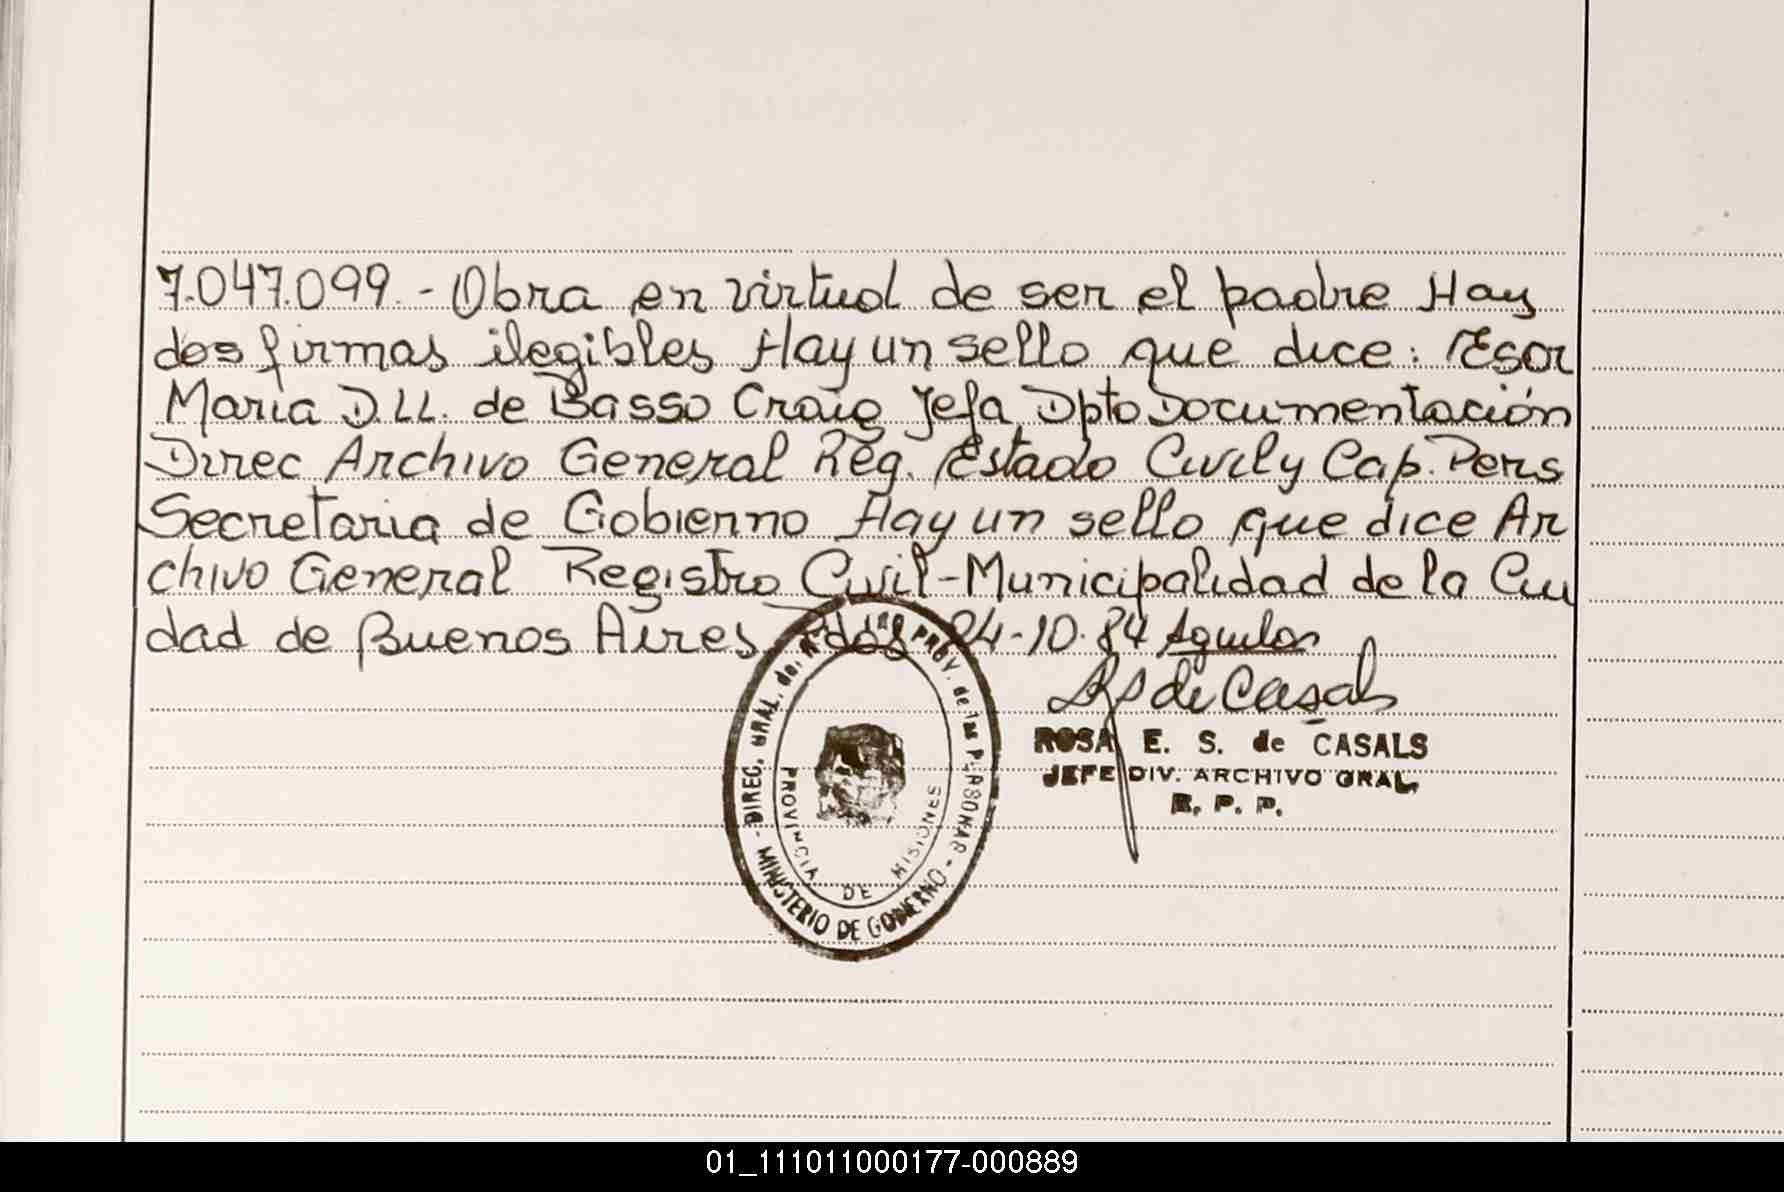 7.047.099.- Obra en virtud de ser el padre Hay
dos firmas ilegibles Hay un sello que dice: Escr
Maria D.LL. de Basso Craig Jefa Dpto Documentación
Direc Archivo General Reg. Estado Civil y Cap. Pers
Secretaria de Gobierno Hay un sello que dice Ar
chivo General Registro Civil-Municipalidad de la Ciu
dad de Buenos Aires Pdas 24-10-84 Aguilar
de Casals
ROSA E. S. de CASALS
JEFE DIV. ARCHIVO GRAL,
R. P. P.
DIREC. GRAL. de PROV. de las PERSONAS
MINISTERIO DE GOBIERNO
PROVINCIA DE MISIONES
01_111011000177-000889